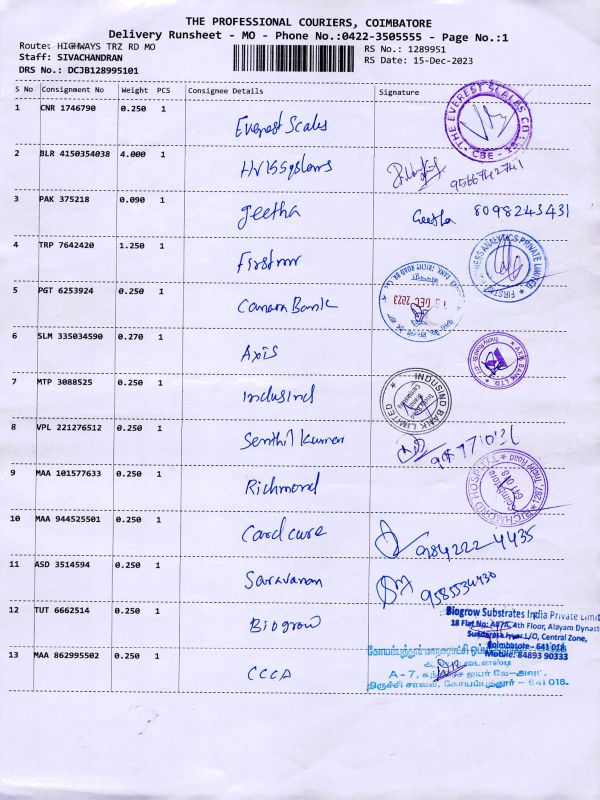 THE PROFESSIONAL COURIERS, COIMBATORE
Delivery Runsheet - MO - Phone No.:0422-3505555 - Page No.:1
Route: HIGHWAYS TRZ RD MO
RS No.: 1289951
Staff: SIVACHANDRAN
RS Date: 15-Dec-2023
DRS No.: DCJB128995101
S No Consignment No Weight PCS Consignee Details Signature
1 CNR 1746790 0.250 1 Everest Scales
THE EVEREST SCALES CO CBE - 18
2 BLR 4150354038 4.000 1 HVISSystems
3 PAK 375218 0.090 1 geetha Geetha 8098243431
4 TRP 7642420 1.250 1 Firstmr
ANALYTICS PRIVATE LIMITED
5 PGT 6253924 0.250 1 Canara Bank
DEC 2023
6 SLM 335034590 0.270 1 Axis
AXIS BANK LTD
7 MTP 3088525 0.250 1 Indusind
INDUSIND BANK LIMITED
8 VPL 221276512 0.250 1 Senthil Kumar
9 MAA 101577633 0.250 1 Richmond
RICHMOND HOSPITAL Trichy Road Coimbatore 641 018
10 MAA 944525501 0.250 1 Card cure 984222 4435
11 ASD 3514594 0.250 1 Saravanan 9585534430
12 TUT 6662514 0.250 1 Biogrow
Biogrow Substrates India Private Limit
18 Flat No: A975, 4th Floor, Alayam Dynast
L/O, Central Zone,
Coimbatore - 641 018
Mobile: 84893 90333
13 MAA 862995502 0.250 1 CCCA
கோயம்புத்தூர் மாநகராட்சி
A - 7,
திருச்சி சாலை, கோயம்புத்தூர் - 641 018.